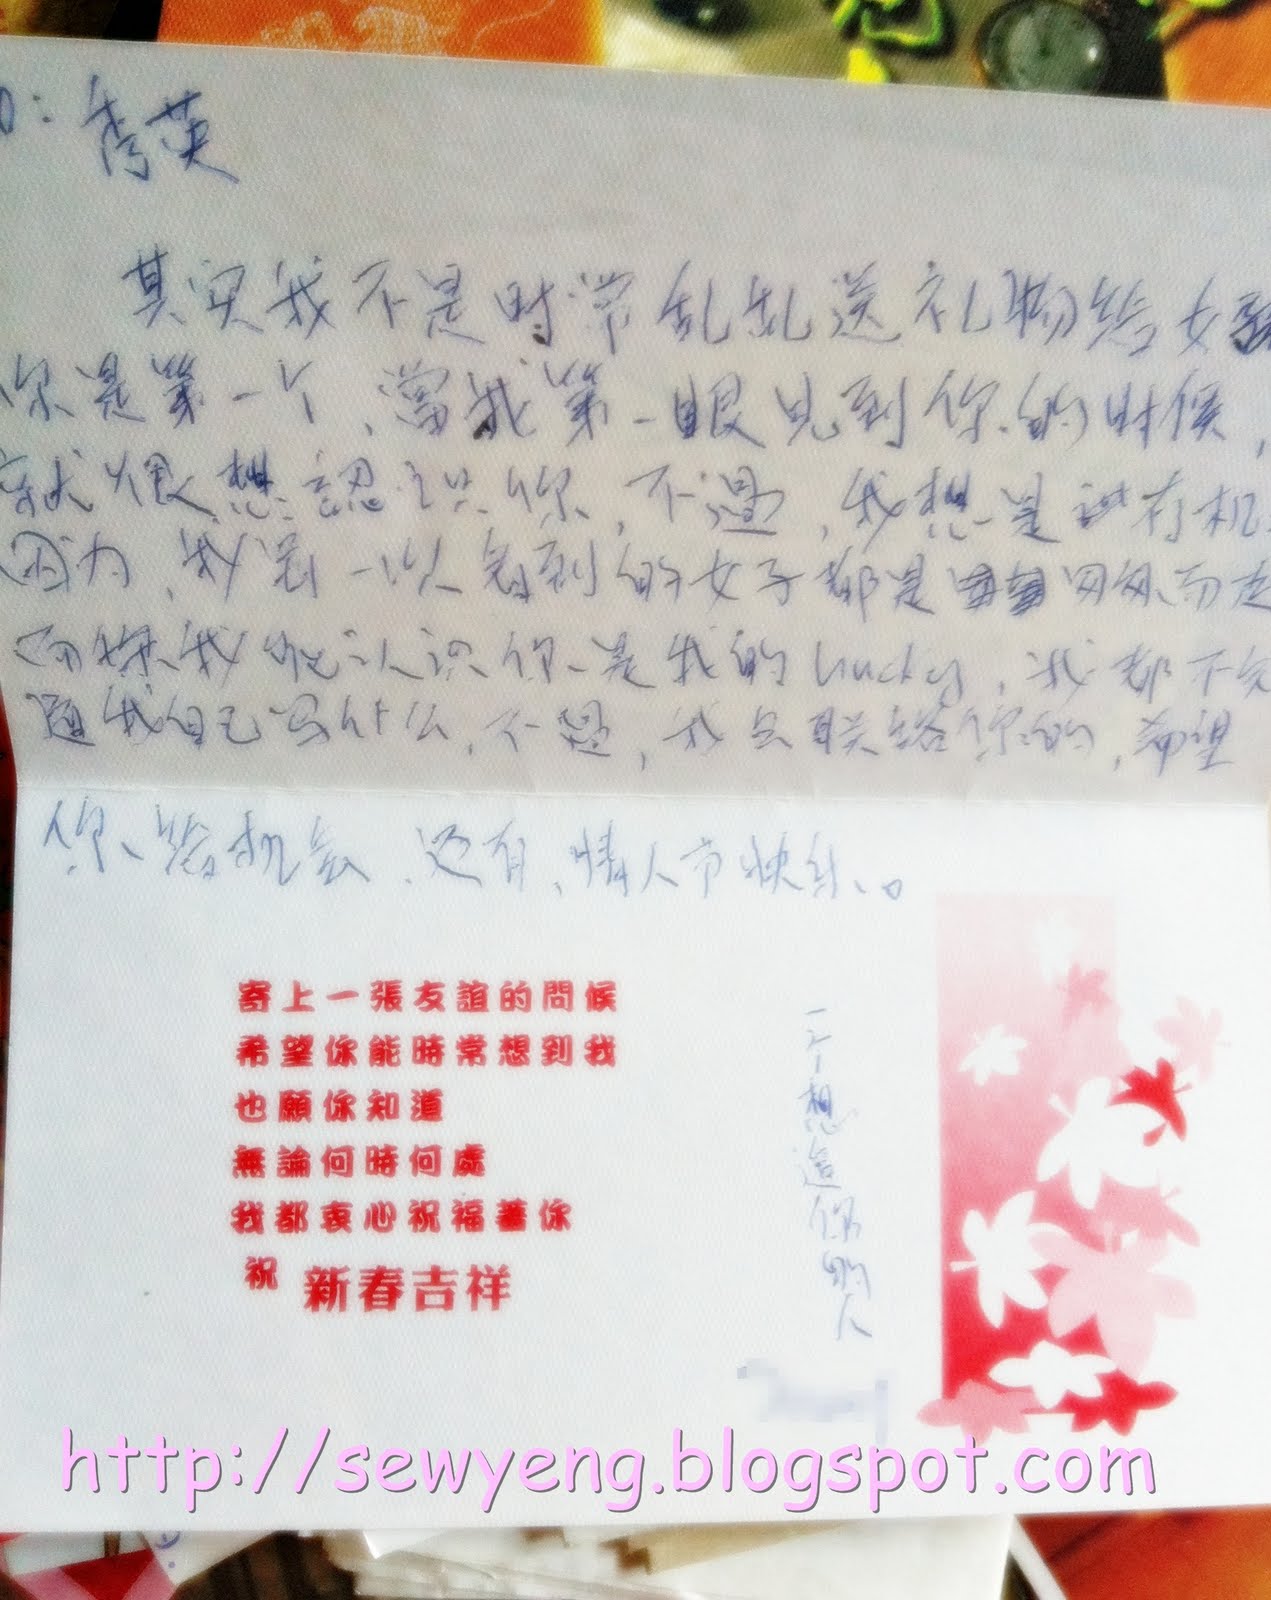 秀英
其实我不是时常乱乱送礼物给女
你是第一个，當我第一眼见到你的时候，
就很想認识你，不過，我想是没有机
因为，我第一次看到的女子都是匆匆而走
而你我能认识你是我的lucky，我都不知
道我自己写什么，不過，我会联络你的，希望
你给机会，还有，情人节快乐。
寄上一張友誼的問候
希望你能時常想到我
也願你知道
無論何時何處
我都衷心祝福著你
祝 新春吉祥
一个想追你的人
http://sewyeng.blogspot.com